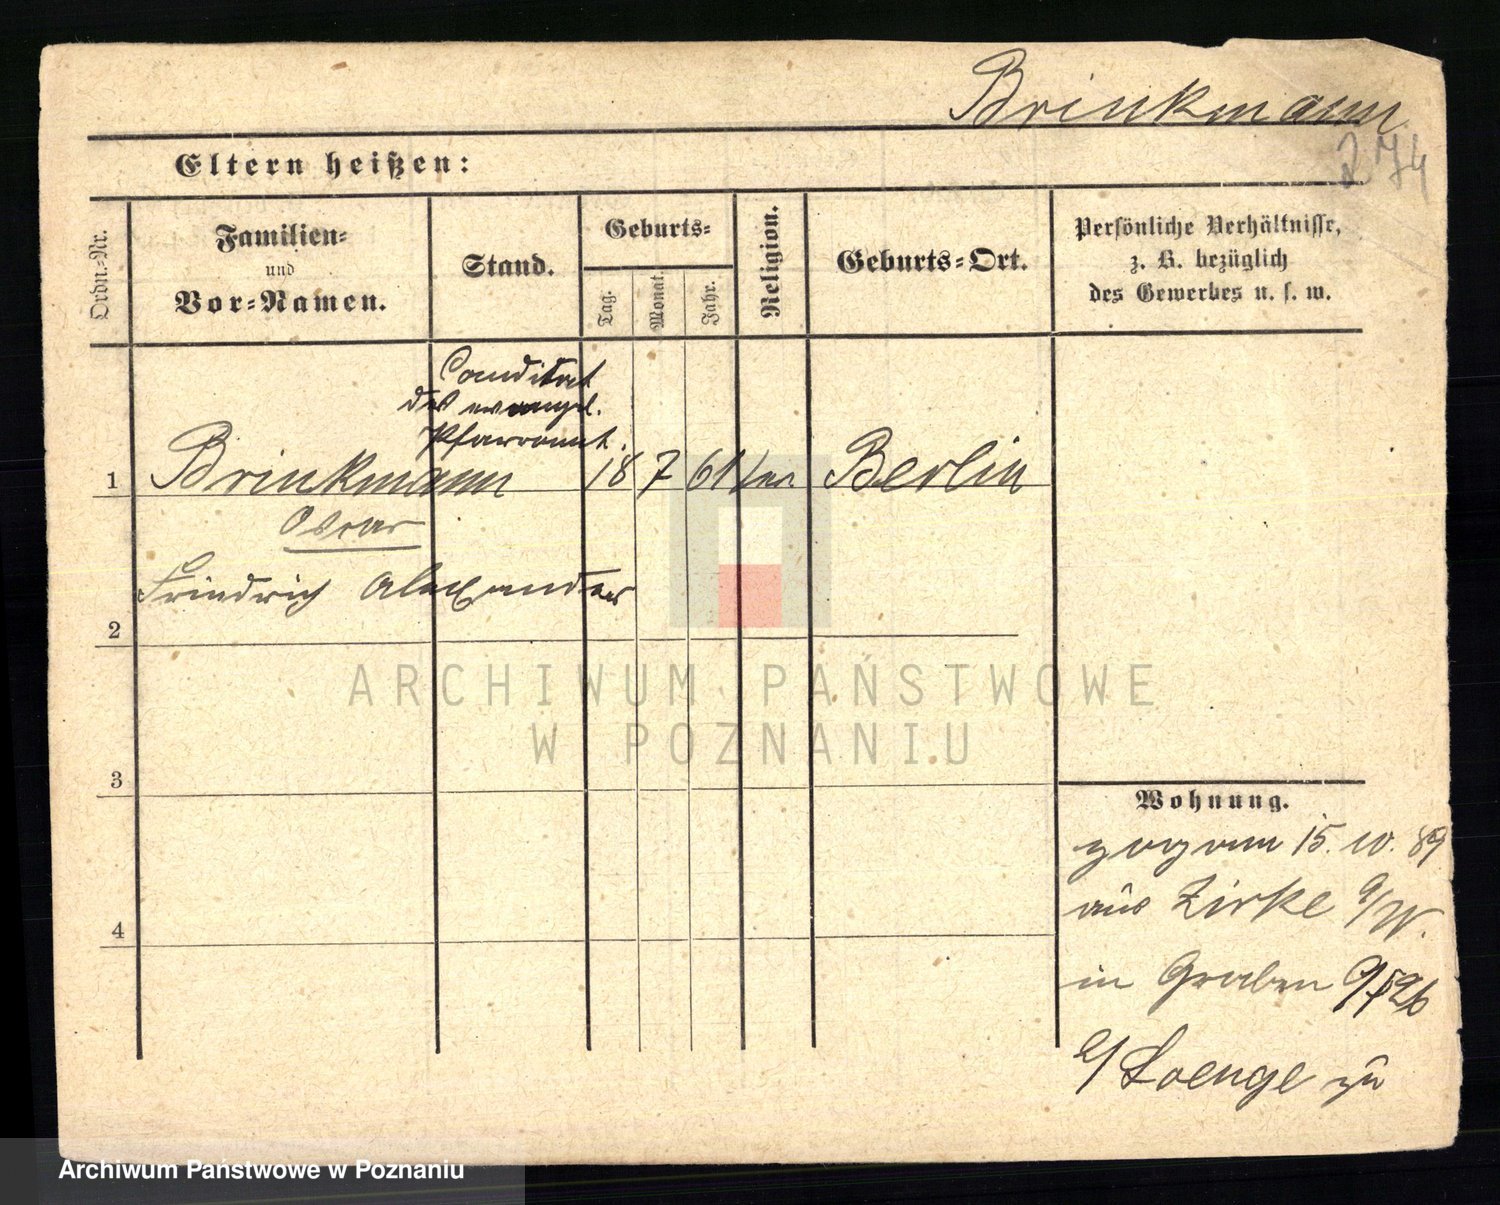 Brinkmann
274
Eltern heißen:
Ordn.-Nr.
Familien-
und
Vor-Namen.
Stand.
Geburts-
Tag.
Monat.
Jahr.
Religion.
Geburts-Ort.
Persönliche Verhältnisse,
z. B. bezüglich
des Gewerbes u. s. w.
Candidat
des evangel.
Pfarramt.
1 Brinkmann 18 7 61 ev. Berlin
Oskar
Friedrich Alexander
2
3
4
Wohnung.
zog am 15. 10. 89
aus Zirke a/W.
in Graben
b/ Loenge zu
ARCHIWUM PAŃSTWOWE
W POZNANIU
Archiwum Państwowe w Poznaniu